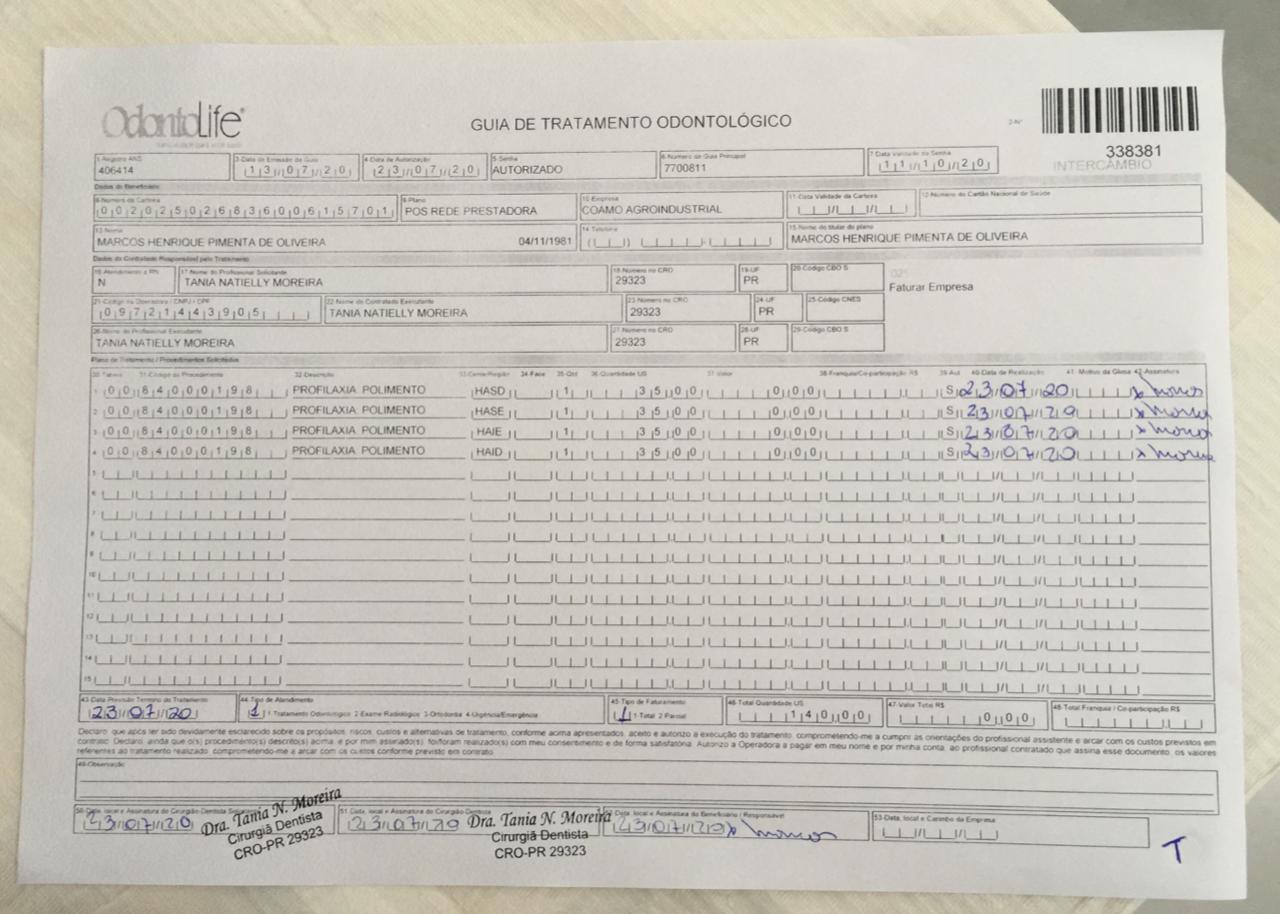 OdontoLife®
GUIA DE TRATAMENTO ODONTOLÓGICO
2-Nº
338381
INTERCÂMBIO
1-Registro ANS 3-Data de Emissão da Guia 4-Data de Autorização 5-Senha 6-Número da Guia Principal 7-Data Validade da Senha
406414 13/07/20 23/07/20 AUTORIZADO 7700811 11/10/20
Dados do Beneficiário
8-Número da Carteira 9-Plano 10-Empresa 11-Data Validade da Carteira 12-Número do Cartão Nacional de Saúde
00202502683600615701 POS REDE PRESTADORA COAMO AGROINDUSTRIAL
13-Nome 14-Telefone 15-Nome do titular do plano
MARCOS HENRIQUE PIMENTA DE OLIVEIRA 04/11/1981 MARCOS HENRIQUE PIMENTA DE OLIVEIRA
Dados do Contratado Responsável pelo Tratamento
16-Atendimento a RN 17-Nome do Profissional Solicitante 18-Número no CRO 19-UF 20-Código CBO S 021
N TANIA NATIELLY MOREIRA 29323 PR
Faturar Empresa
21-Código na Operadora / CNPJ / CPF 22-Nome do Contratado Executante 23-Número no CRO 24-UF 25-Código CNES
09721443905 TANIA NATIELLY MOREIRA 29323 PR
26-Nome do Profissional Executante 27-Número no CRO 28-UF 29-Código CBO S
TANIA NATIELLY MOREIRA 29323 PR
Plano de Tratamento / Procedimentos Solicitados
30-Tabela 31-Código do Procedimento 32-Descrição 33-Dente/Região 34-Face 35-Qtd 36-Quantidade US 37-Valor 38-Franquia/Co-participação R$ 39-Aut 40-Data de Realização 41-Motivo da Glosa 42-Assinatura
1 00 84000198 PROFILAXIA POLIMENTO HASD 1 35,00 0,00 S 23/07/20
2 00 84000198 PROFILAXIA POLIMENTO HASE 1 35,00 0,00 S 23/07/20
3 00 84000198 PROFILAXIA POLIMENTO HAIE 1 35,00 0,00 S 23/07/20
4 00 84000198 PROFILAXIA POLIMENTO HAID 1 35,00 0,00 S 23/07/20
5
6
7
8
9
10
11
12
13
14
15
43-Data Previsão Término do Tratamento 44-Tipo de Atendimento 45-Tipo de Faturamento 46-Total Quantidade US 47-Valor Total R$ 48-Total Franquia / Co-participação R$
23/07/20 1 1-Tratamento Odontológico 2-Exame Radiológico 3-Ortodontia 4-Urgência/Emergência 1 1-Total 2 Parcial 140,00 0,00
Declaro, que após ter sido devidamente esclarecido sobre os propósitos, riscos, custos e alternativas de tratamento, conforme acima apresentados, aceito e autorizo a execução do tratamento, comprometendo-me a cumprir as orientações do profissional assistente e arcar com os custos previstos em
contrato. Declaro, ainda que o(s) procedimento(s) descrito(s) acima, e por mim assinado(s), foi/foram realizado(s) com meu consentimento e de forma satisfatória. Autorizo a Operadora a pagar em meu nome e por minha conta, ao profissional contratado que assina esse documento, os valores
referentes ao tratamento realizado, comprometendo-me a arcar com os custos conforme previsto em contrato.
49-Observação
50-Data, local e Assinatura do Cirurgião Dentista Solicitante 51-Data, local e Assinatura do Cirurgião Dentista 52-Data, local e Assinatura do Beneficiário / Responsável 53-Data, local e Carimbo da Empresa
23/07/20 23/07/20 23/07/20
Dra. Tania N. Moreira
Cirurgiã Dentista
CRO-PR 29323
Dra. Tania N. Moreira
Cirurgiã Dentista
CRO-PR 29323
T